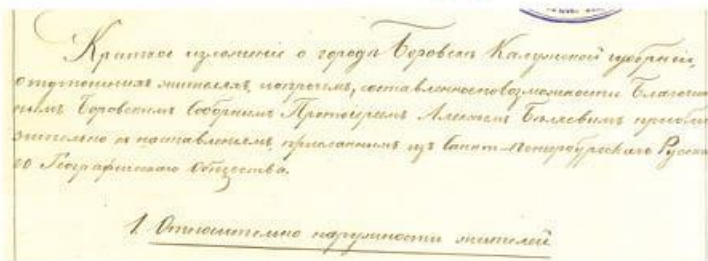 Краткое изложеніе о городѣ Боровскѣ Калужской губерніи,
о тутошнихъ жителяхъ, и прочемъ, составленное по возможности Благочин
нымъ Боровскимъ Соборнымъ Протоіереемъ Алексѣемъ приобли
зительно къ наставленіямъ, присланнымъ изъ Санкт-Петербургскаго Русска
го Географическаго Общества.
1. Относительно наружности жителей